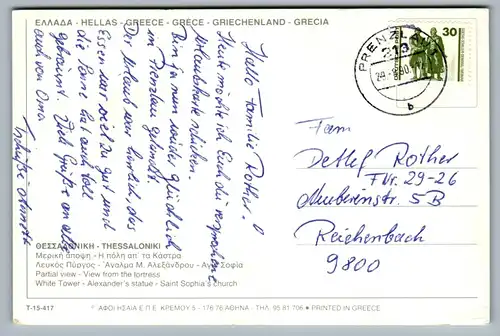 ΕΛΛΑΔΑ - HELLAS - GREECE - GRÈCE - GRIECHENLAND - GRECIA
Hallo Familie Rother!
Heute möchte ich Euch die versprochene
Urlaubskarte schicken.
Bin ja nun wieder glücklich
in Prenzlau gelandet.
Der Urlaub war herrlich, das
Essen war viel zu gut und
die Sonne hat auch toll
gebräunt. Viele Grüße an alle
auch von Oma
Tschüße
PRENZLAU
213
b
30
Fam
Detlef Rother
FNr. 29-26
5B
Reichenbach
9800
ΘΕΣΣΑΛΟΝΙΚΗ - THESSALONIKI
Μερική άποψη - Η πόλη απ' τα Κάστρα
Λευκός Πύργος - Άγαλμα Μ. Αλεξάνδρου - Αγία Σοφία
Partial view - View from the fortress
White Tower - Alexander's statue - Saint Sophia's church
T-15-417
ΑΦΟΙ ΗΣΑΙΑ Ε.Π.Ε. ΚΡΕΜΟΥ 5 - 176 76 ΑΘΗΝΑ - ΤΗΛ. 95 81 706 - PRINTED IN GREECE